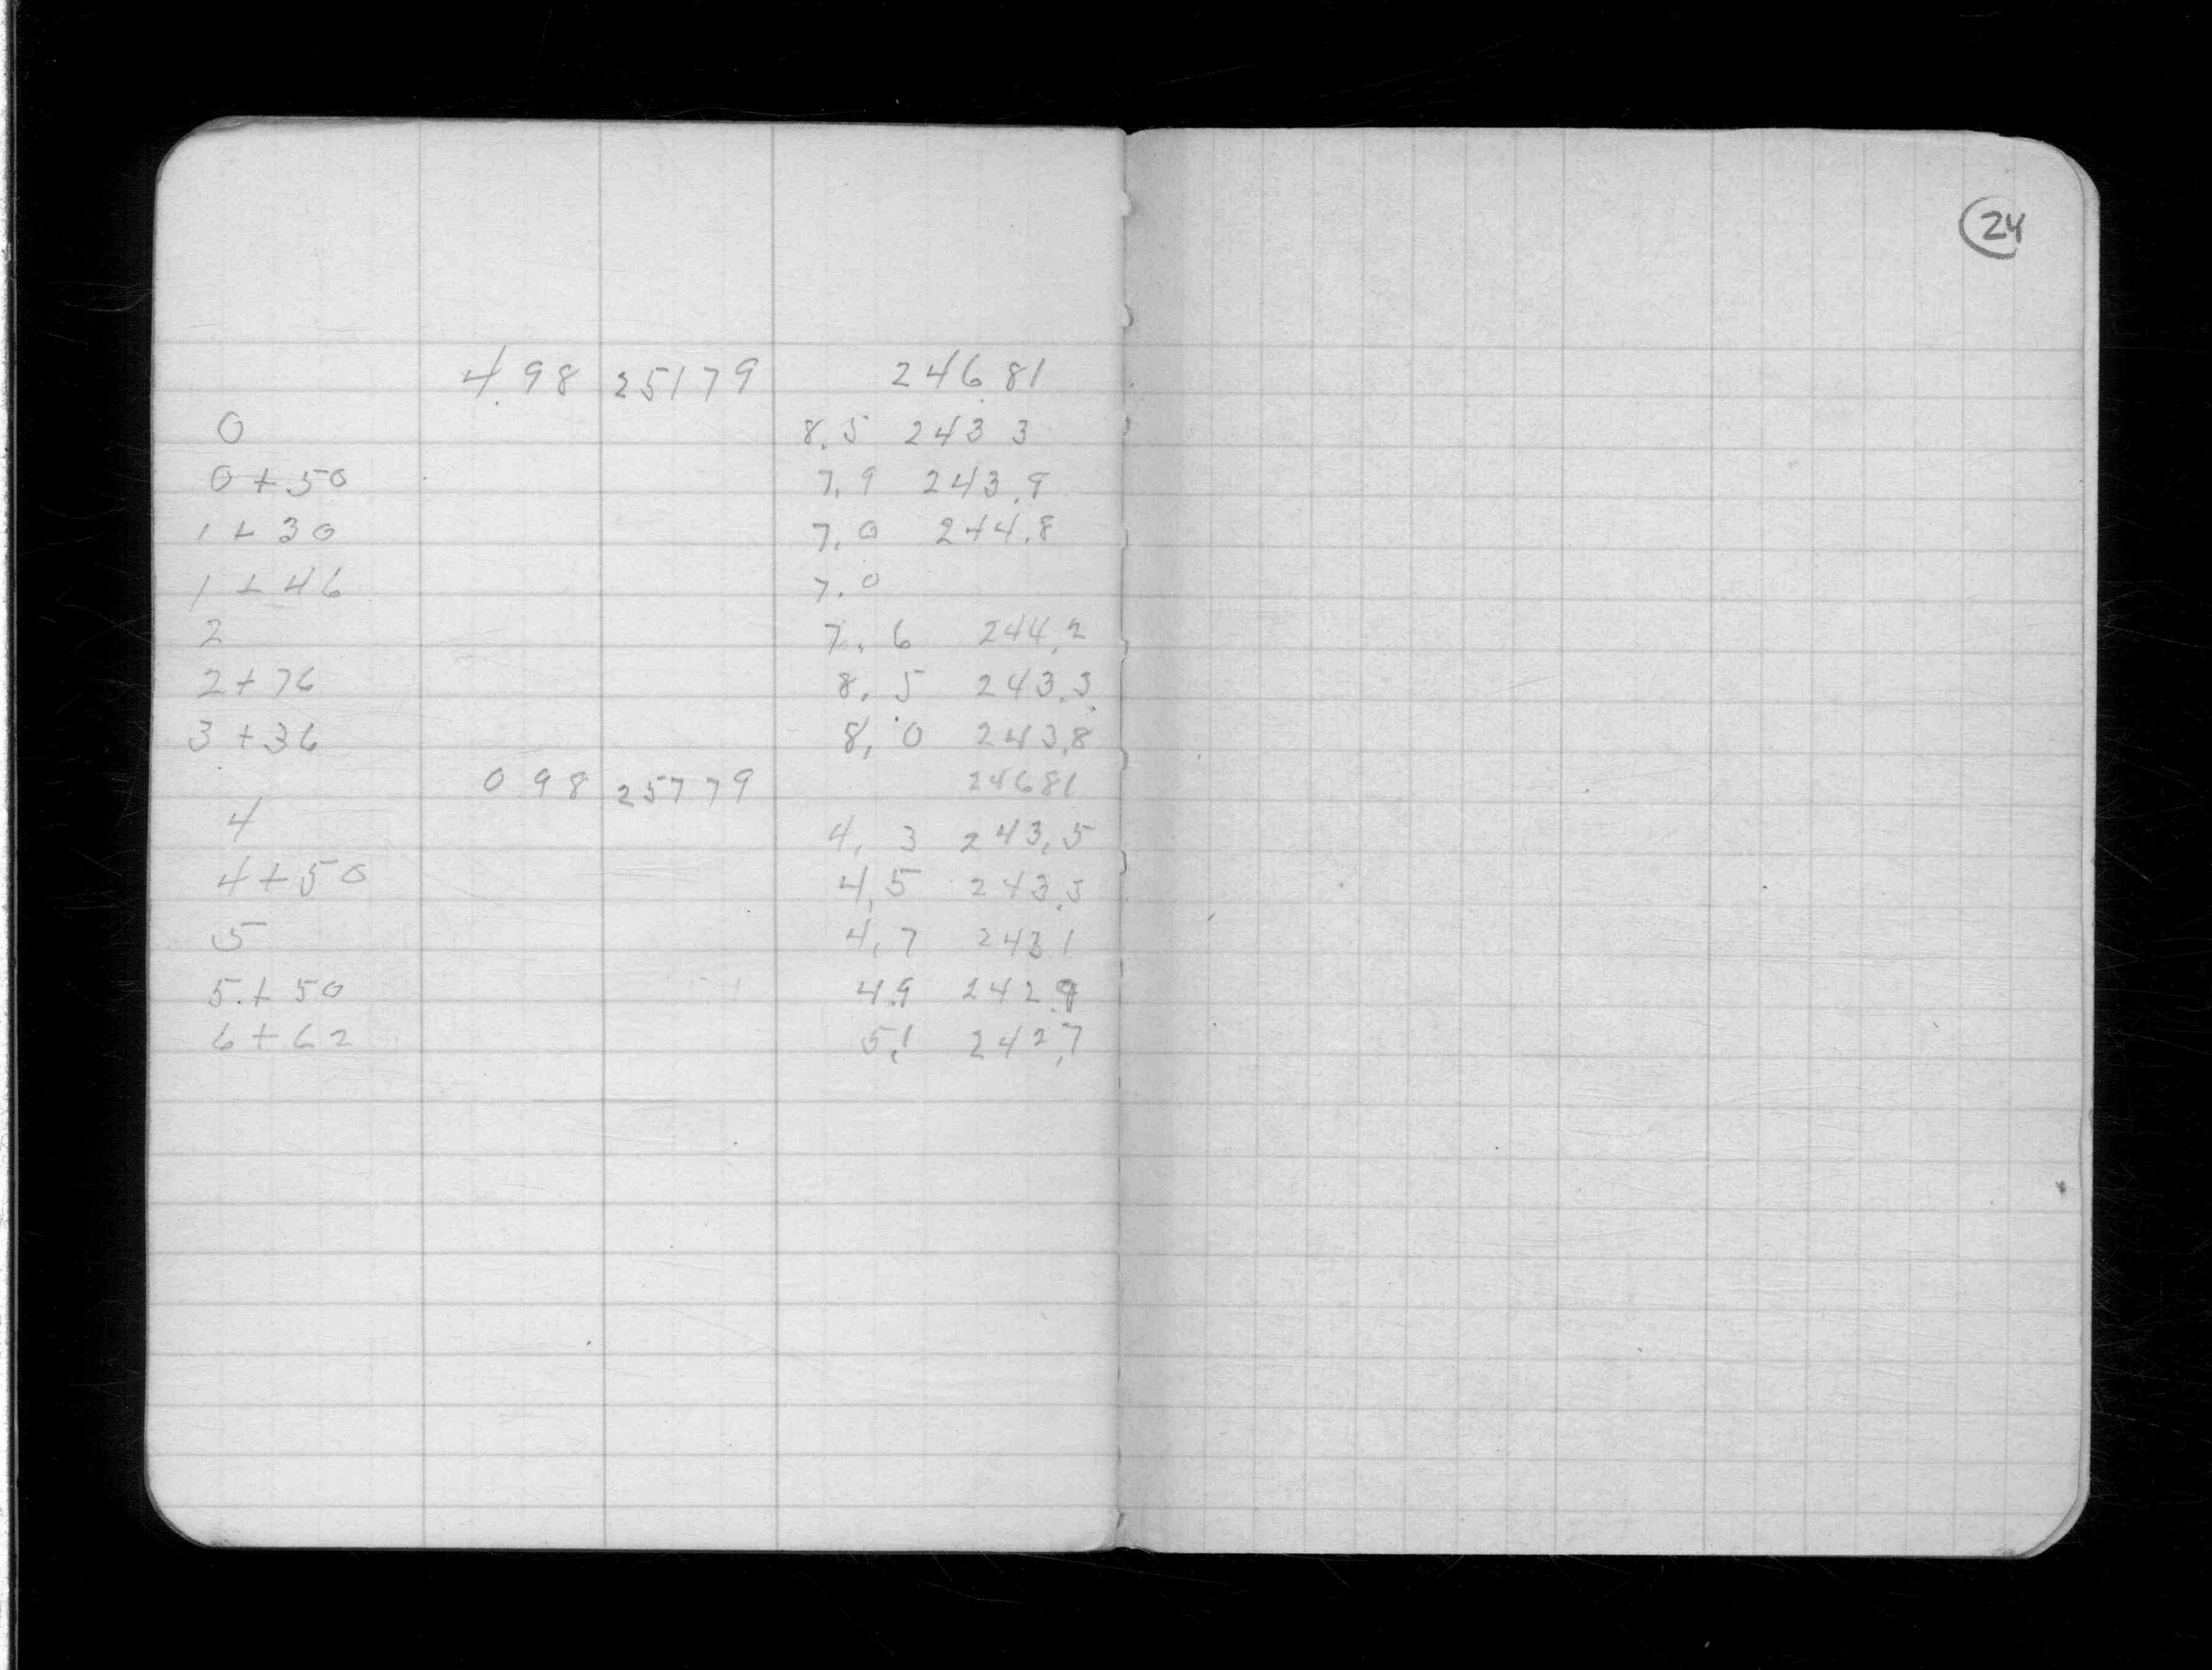 4.98 25179 246.81
0 8.5 243 3
0+50 7.9 243.9
1+30 7.0 244.8
1+46 7.0
2 7.6 244.2
2+76 8.5 243.3
3+36 8.0 243.8
0 98 25779 24681
4 4.3 243.5
4+50 4.5 243.3
5 4.7 243.1
5+50 4.9 242.9
6+62 5.1 242.7
24